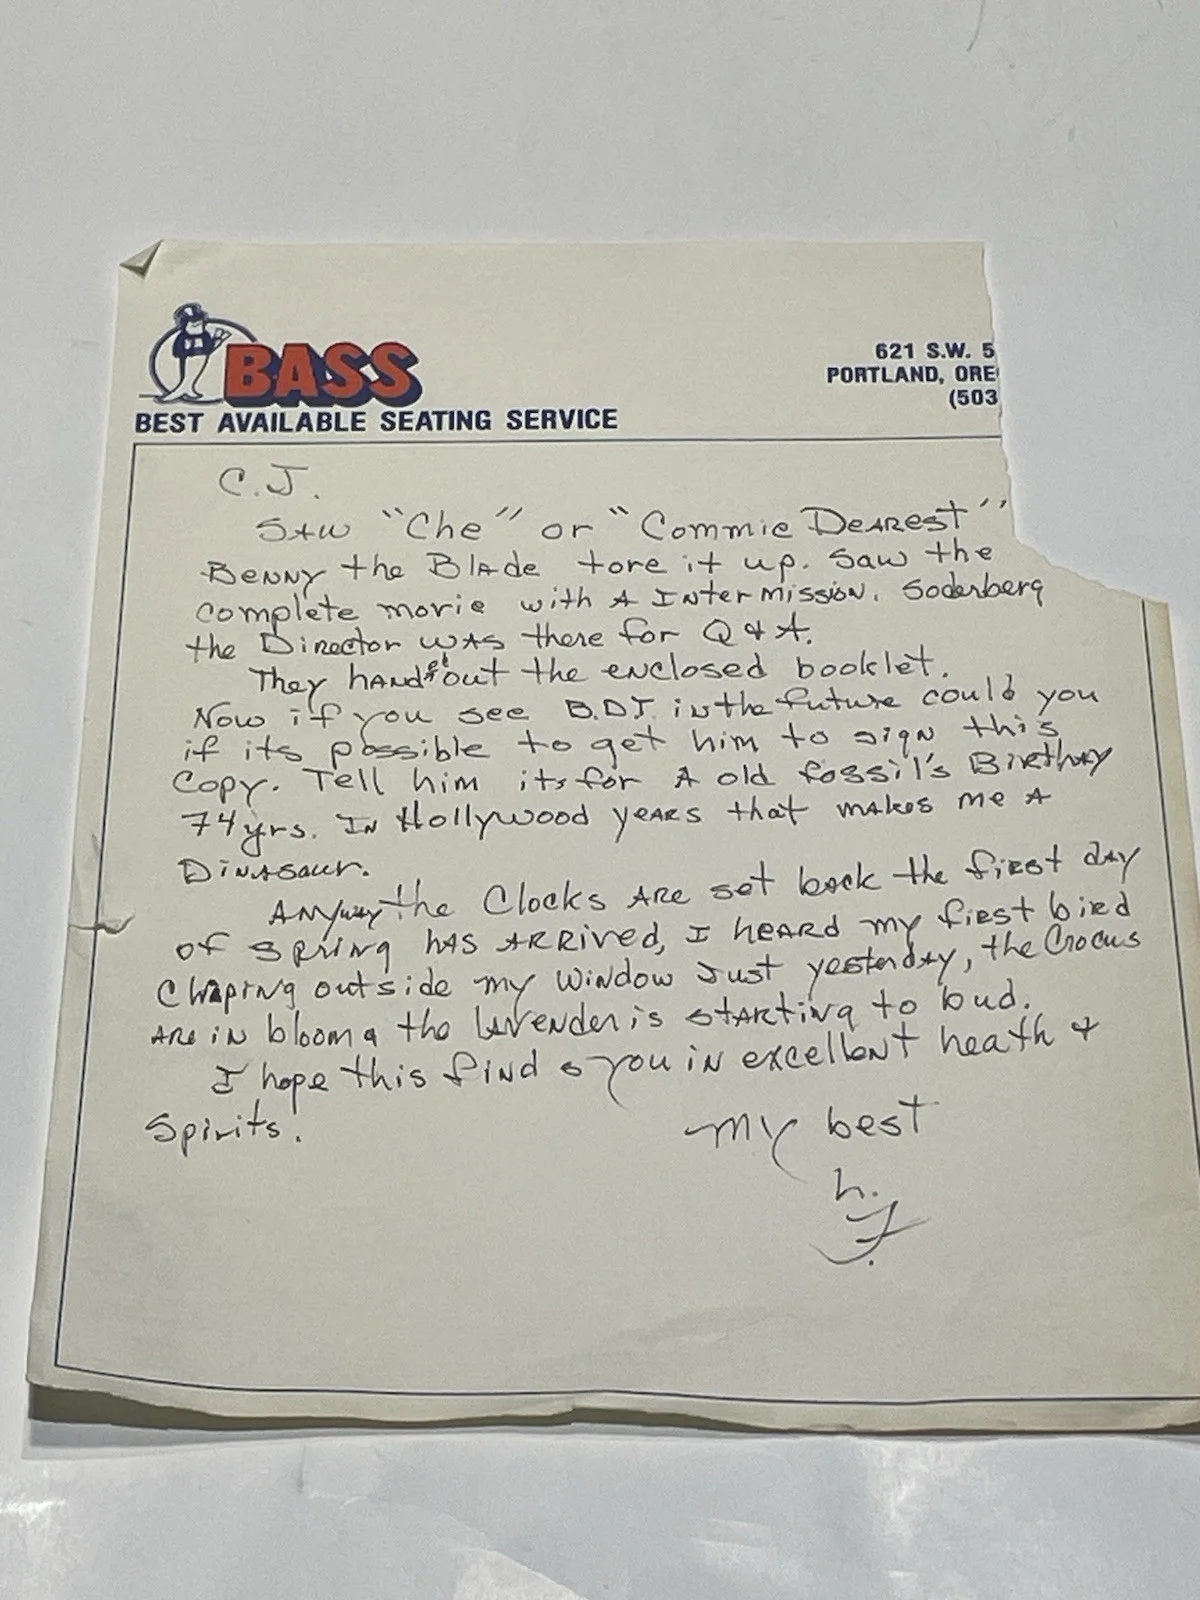 BASS
BEST AVAILABLE SEATING SERVICE
621 S.W. 5
PORTLAND, ORE
(503
C.J.
SAW "Che" or "Commie DEARest"
BENNY the BLAde tore it up. Saw the
complete movie with A INterMissioN. Soderberg
the Director WAS there for Q & A.
They hANDed out the eNclosed booklet.
Now if you see B.D.T. in the future could you
if its possible to get him to sign this
Copy. Tell him its for A old fossil's Birthday
74yrs. IN Hollywood yeARs that makes me A
DiNAsaur.
ANyway the Clocks ARe set back the first day
of spring hAS ARRived, I heARd my fiRst bird
Chirping outside my WiNdow Just yesterday, the Crocus
ARe iN bloom & the LAveNder is stARting to bud.
I hope this fiNds you iN excelleNt heath &
Spirits.
My best
h.
F.